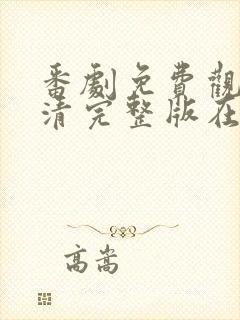 番劇免費觀
清完整版在
高嵩